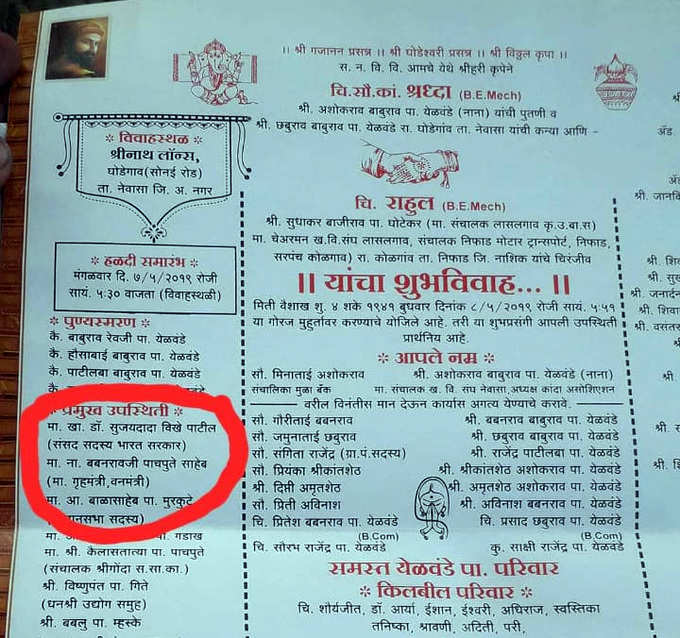 ।। श्री गजानन प्रसन्न ।। श्री घोडेश्वरी प्रसन्न ।। श्री विठ्ठल कृपा ।।
स. न. वि. वि. आमचे येथे श्रीहरी कृपेने
चि.सौ.कां. श्रध्दा (B.E.Mech)
श्री. अशोकराव बाबुराव पा. येळवंडे (नाना) यांची पुतणी व
श्री. छबुराव बाबुराव पा. येळवंडे रा. घोडेगाव ता. नेवासा यांची कन्या आणि -
चि. राहुल (B.E.Mech)
श्री. सुधाकर बाजीराव पा. घोटेकर (मा. संचालक लासलगाव कृ.उ.बा.स)
मा. चेअरमन ख.वि.संघ लासलगाव, संचालक निफाड मोटार ट्रान्सपोर्ट, निफाड,
सरपंच कोळगाव) रा. कोळगांव ता. निफाड जि. नाशिक यांचे चिरंजीव
|| यांचा शुभविवाह... ||
मिती वैशाख शु. ४ शके १९४१ बुधवार दिनांक ८/५/२०१९ रोजी सायं. ५:५१
या गोरज मुहुर्तावर करण्याचे योजिले आहे. तरी या शुभप्रसंगी आपली उपस्थिती
प्रार्थनिय आहे.
❊ विवाहस्थळ ❊
श्रीनाथ लॉन्स,
घोडेगाव(सोनई रोड)
ता. नेवासा जि. अ. नगर
❊ हळदी समारंभ ❊
मंगळवार दि. ७/५/२०१९ रोजी
सायं. ५:३० वाजता (विवाहस्थळी)
❊ पुण्यस्मरण ❊
कै. बाबुराव रेवजी पा. येळवंडे
कै. हौसाबाई बाबुराव पा. येळवंडे
कै. पाटीलबा बाबुराव पा. येळवंडे
❊ प्रमुख उपस्थिती ❊
मा. खा. डॉ. सुजयदादा विखे पाटील
(संसद सदस्य भारत सरकार)
मा. ना. बबनरावजी पाचपुते साहेब
(मा. गृहमंत्री,वनमंत्री)
मा. आ. बाळासाहेब पा. मुरकुटे
सदस्य)
पा. गडाख
मा. श्री. कैलासतात्या पा. पाचपुते
(संचालक श्रीगोंदा स.सा.का.)
श्री. विष्णुपंत पा. गिते
(धनश्री उद्योग समुह)
श्री. बबलु पा. म्हस्के
❊ आपले नम्र ❊
सौ. मिनाताई अशोकराव श्री. अशोकराव बाबुराव पा. येळवंडे (नाना)
संचालिका मुळा बँक मा. संचालक ख. वि. संघ नेवासा,अध्यक्ष कांदा असोशिएशन
वरील विनंतीस मान देऊन कार्यास अगत्य येण्याचे करावे.
सौ. गौरीताई बबनराव श्री. बबनराव बाबुराव पा. येळवंडे
सौ. जमुनाताई छबुराव श्री. छबुराव बाबुराव पा. येळवंडे
सौ. संगिता राजेंद्र (ग्रा.पं.सदस्य) श्री. राजेंद्र पाटीलबा पा. येळवंडे
सौ. प्रियंका श्रीकांतशेठ श्री. श्रीकांतशेठ अशोकराव पा. येळवंडे
सौ. दिप्ती अमृतशेठ श्री. अमृतशेठ अशोकराव पा. येळवंडे
सौ. प्रिती अविनाश श्री. अविनाश बबनराव पा. येळवंडे
चि. प्रितेश बबनराव पा. येळवंडे चि. प्रसाद छबुराव पा. येळवंडे
(B.Com) (B.Com)
चि. सौरभ राजेंद्र पा. येळवंडे कु. साक्षी राजेंद्र पा. येळवंडे
समस्त येळवंडे पा. परिवार
❊ किलबील परिवार ❊
चि. शौर्यजीत, डॉ. आर्या, ईशान, ईश्वरी, अधिराज, स्वस्तिका
तनिष्का, श्रावणी, अदिती, परी,